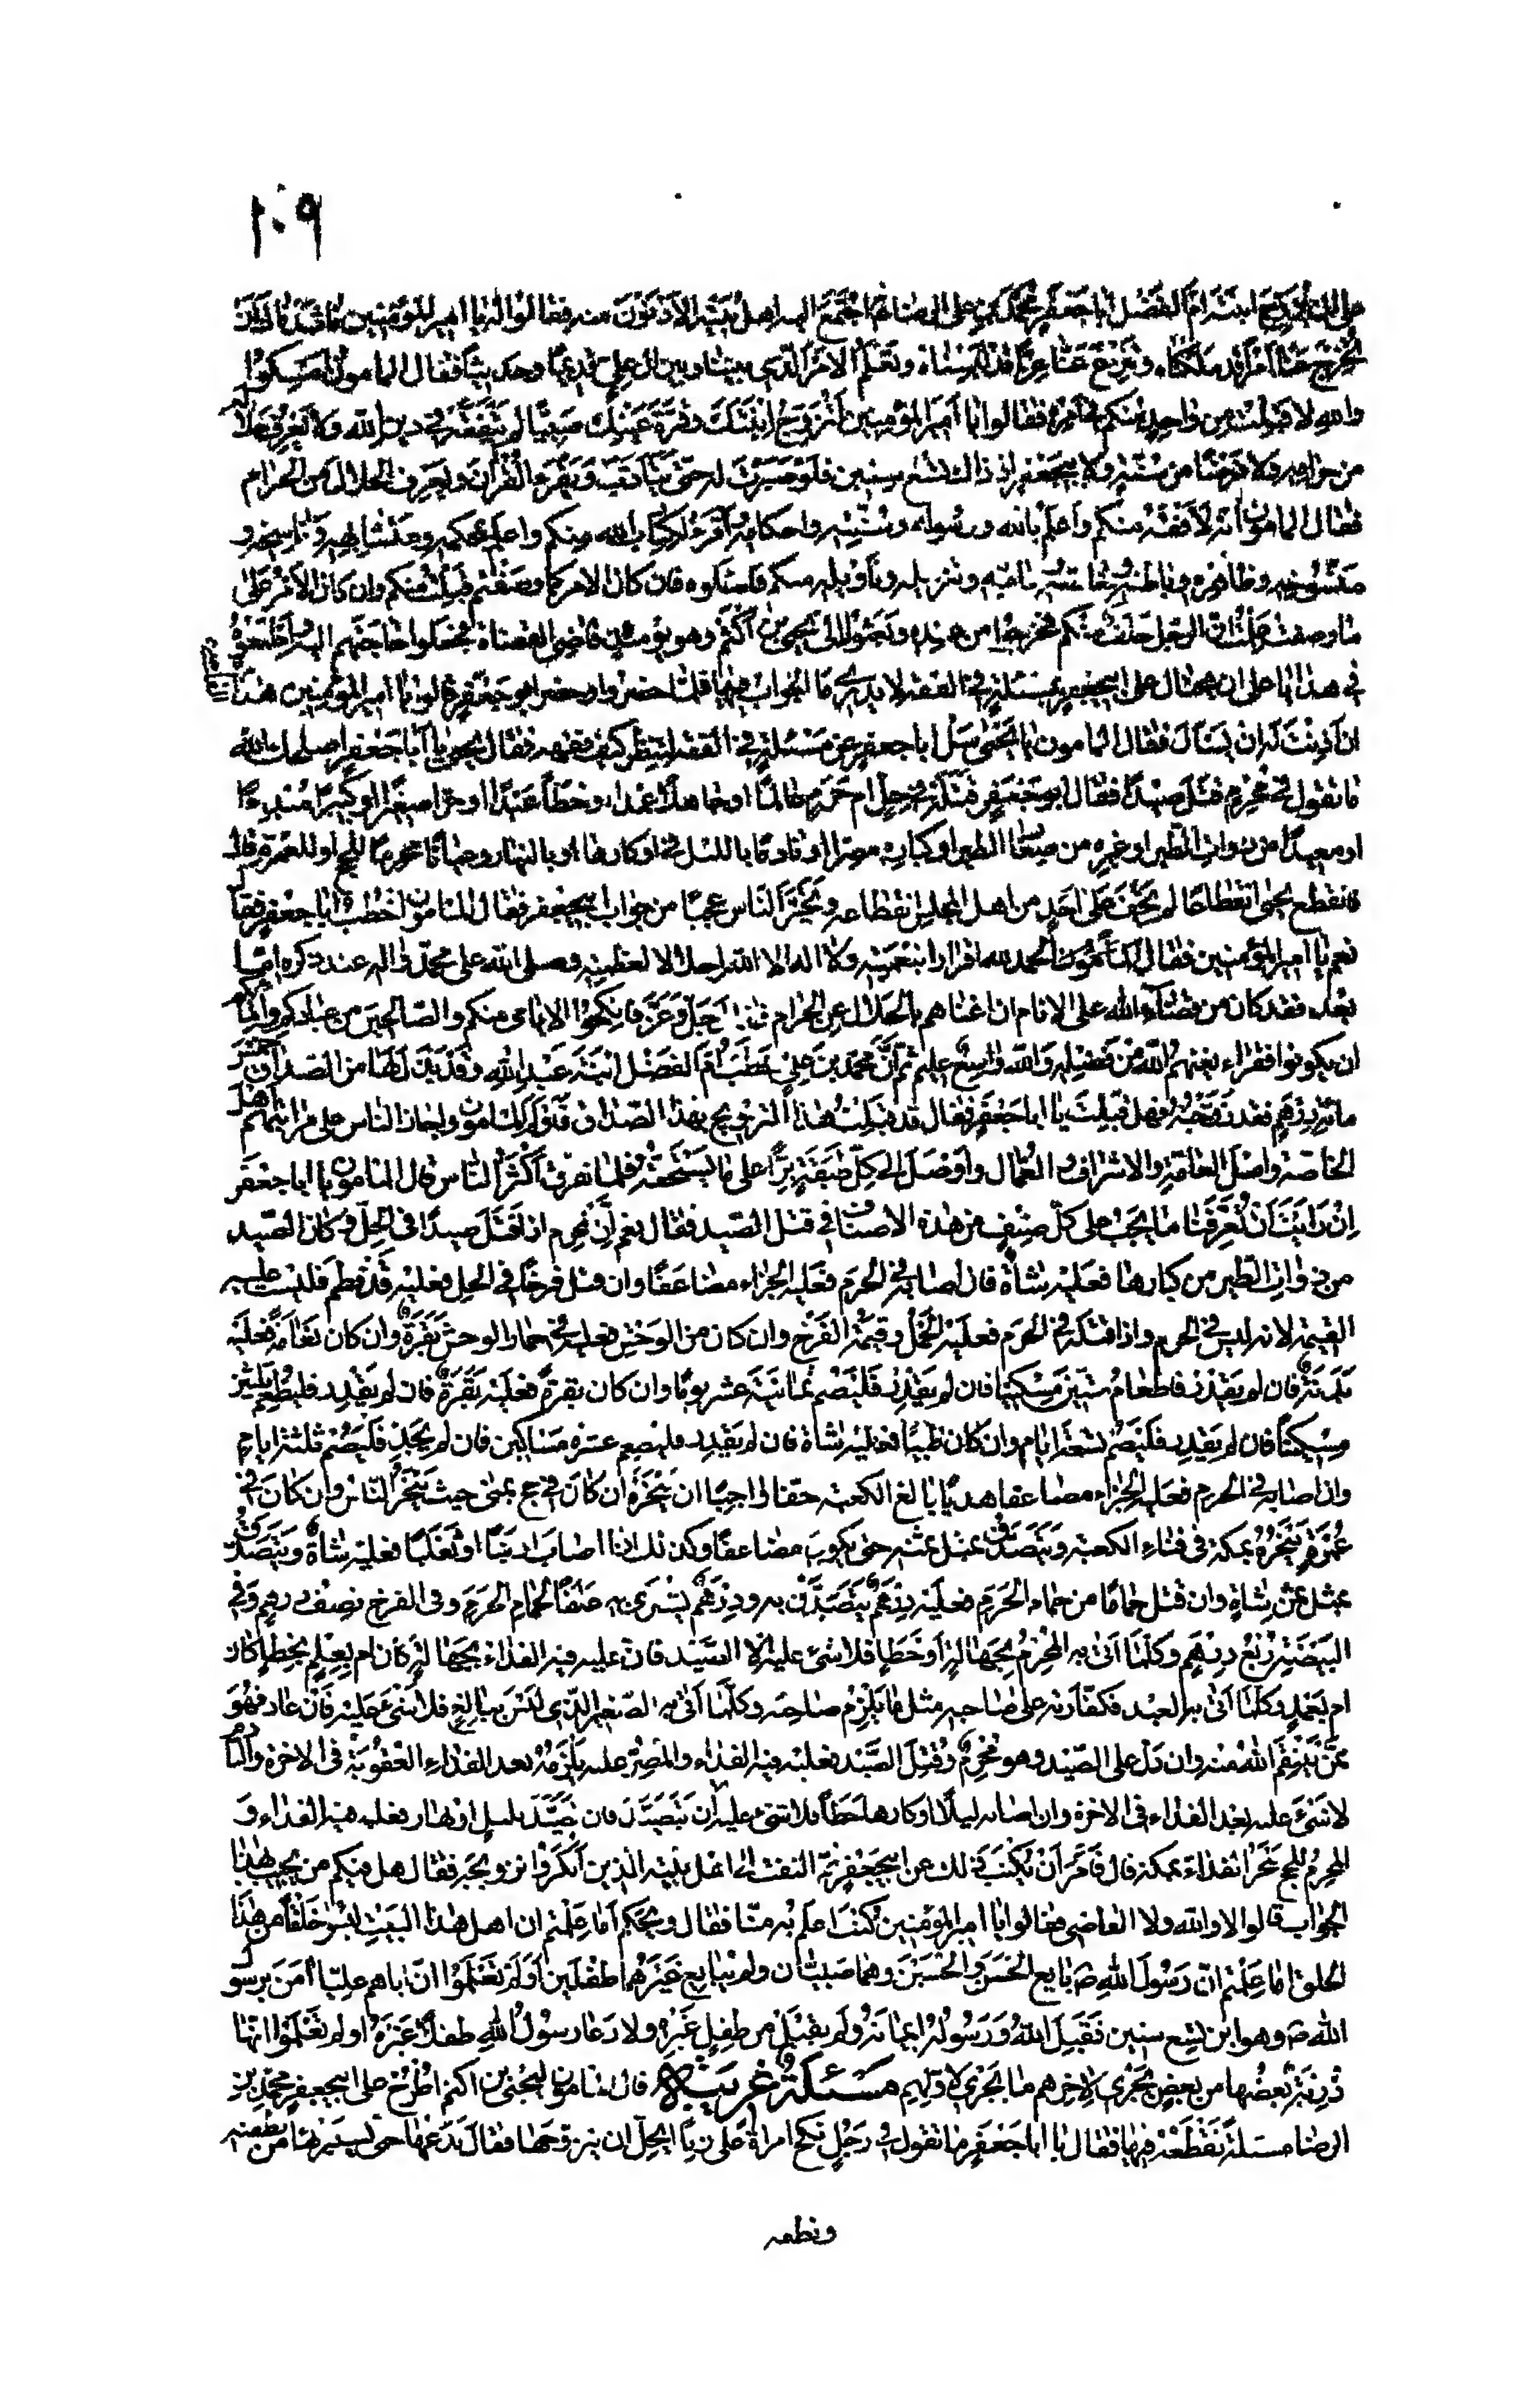 ١٠٩
على ان يزوج ابنته ام الفضل ابا جعفر محمد بن على الرضا ع اجتمع اليه اهل بيته الادنون منه فقالوا له يا امير المؤمنين ناشدناك ان
تخرج عنا امرا قد ملكناه وتنزع عنا عزا قد البسناه وتعلم الامر الذى بيننا وبين ال على قديما وحديثا فقال المامون امسكوا
والله لا قبلت من واحد منكم فى امره فقالوا يا امير المؤمنين اتزوج ابنتك وقرة عينك صبيا لم يتفقه فى دين الله ولا يعرف حلاله
من حرامه ولا فرضا من سنته ولابيجعفر اذ ذاك تسع سنين فلو صبرت له حتى يتأدب ويقرء القران ويعرف الحلال من الحرام
فقال المامون انه لافقه منكم واعلم بالله ورسوله وسنته واحكامه واقرء لكتاب الله منكم واعلم بمحكمه ومتشابهه وناسخه و
منسوخه وظاهره وباطنه وخاصه وعامه وتنزيله وتاويله منكم فاسئلوه فان كان الامر كما وصفتم قبلت منكم وان كان الامر على
ما وصفت علمت ان الرجل خلف منكم فخرجوا من عنده وبعثوا الى يحيى بن اكثم وهو يومئذ قاضى القضاة فجعلوا حاجتهم اليه واطمعوه
فى هدايا على ان يحتال على ابيجعفر بمسئلة فى الفقه لا يدرى ما الجواب فيها فلما حضروا وحضر ابوجعفر قالوا يا امير المؤمنين هذا القاضى
ان اذنت له ان يسأل فقال المامون يا يحيى سل ابا جعفر عن مسئلة فى الفقه لتنظر كيف فقهه فقال يحيى يا ابا جعفر اصلحك الله
ما تقول فى محرم قتل صيدا فقال ابو جعفر قتله فى حل ام حرم عالما او جاهلا عمدا او خطأ عبدا او حرا صغيرا او كبيرا مبدءا
او معيدا من ذوات الطير او غيره من صغار الطير او كباره مصرا او نادما بالليل فى اوكارها او بالنهار وعيانا محرما للحج او للعمرة قال
فانقطع يحيى انقطاعا لم يخف على احد من اهل المجلس انقطاعه وتحير الناس عجبا من جواب ابيجعفر فقال المامون اخطب ابا جعفر فقال
نعم يا امير المؤمنين فقال المأمون الحمد لله اقرارا بنعمته ولا اله الا الله اجلالا لعظمته وصلى الله على محمد واله عند ذكره اما
بعد فقد كان من قضاء الله على الانام ان اغناهم بالحلال عن الحرام فقال جل وعز وانكحوا الايامى منكم والصالحين من عبادكم وامائكم
ان يكونوا فقراء يغنهم الله من فضله والله واسع عليم ثم ان محمد بن على خطب ام الفضل ابنة عبد الله وقد بذل لها من الصداق خمس
مائة درهم فقد زوجته فهل قبلت يا ابا جعفر فقال قد قبلت هذا التزويج بهذا الصداق ثم اولم المامون واجاز الناس على مراتبهم اهل
الخاصة واهل العامة والاشراف والعمال واوصل الى كل طبقة برا على ما يستحقه فلما تفرق اكثر الناس قال المامون يا ابا جعفر
ان رايت ان تعرفنا ما يجب على كل صنف من هذه الاصناف فى قتل الصيد فقال نعم ان المحرم اذا قتل صيدا فى الحل وكان الصيد
من ذوات الطير من كبارها فعليه شاة فان اصابه فى الحرم فعليه الجزاء مضاعفا وان قتل فرخا فى الحل فعليه قد فطم فليست عليه
القيمة لانه ليس فى الحرم واذا قتله فى الحرم فعليه الحمل وقيمة الفرخ وان كان من الوحش فعليه فى حمار الوحش بقرة وان كان نعامة فعليه
بدنة فان لم يقدر فاطعام ستين مسكينا فان لم يقدر فليصم ثمانية عشر يوما وان كان بقرة فعليه بقرة فان لم يقدر فليطعم ثلثين
مسكينا فان لم يقدر فليصم تسعة ايام وان كان ظبيا فعليه شاة فان لم يقدر فليصم عشرة مساكين فان لم يجد فليصم ثلثة ايام
وان اصابه فى الحرم فعليه الجزاء مضاعفا هديا بالغ الكعبة حقا واجبا ان ينحره ان كان فى حج بمنى حيث ينحر الناس وان كان فى
عمرة ينحره بمكة فى فناء الكعبة ويتصدق بمثل ثمنه حتى يكون مضاعفا وكذلك اذا اصاب ارنبا او ثعلبا فعليه شاة ويتصدق
بمثل ثمن شاة وان قتل حماما من حمام الحرم فعليه درهم يتصدق به ودرهم يشترى به علفا لحمام الحرم وفى الفرخ نصف درهم وفى
البيضة ربع درهم وكلما اتى به المحرم بجهالة او خطا فلا شئ عليه الا الصيد فان عليه فيه الفداء بجهالة كان ام بعلم بخطا كان
ام بعمد وكلما اتى به العبد فكفارته على صاحبه مثل ما يلزم صاحبه وكلما اتى به الصغير الذى ليس ببالغ فلا شئ عليه فان عاد فهو
ممن ينتقم الله منه وان دل على الصيد وهو محرم وقتل الصيد فعليه فيه الفداء والمصر عليه يلزمه بعد الفداء العقوبة فى الاخرة والنادم
لا شئ عليه بعد الفداء فى الاخرة وان اصابه ليلا اوكارها خطأ فلا شئ عليه ان يتصيد فان تصيد بليل او نهار فعليه فيه الفداء و
المحرم للحج ينحر الفداء بمكة قال فامر ان يكتب ذلك عن ابيجعفر ثم التفت الى اهل بيته الذين انكروا تزويجه فقال هل منكم من يجيب بهذا
الجواب قالوا لا والله ولا القاضى فقالوا يا امير المؤمنين كنت اعلم به منا فقال ويحكم اما علمتم ان اهل هذا البيت ليسوا خلقا من هذا
الخلق اما علمتم ان رسول الله ص بايع الحسن والحسين وهما صبيان ولم يبايع غيرهما طفلين اولم تعلموا ان اباهم عليا امن برسول
الله ص وهو ابن تسع سنين فقبل الله ورسوله ايمانه ولم يقبل من طفل غيره ولا دعا رسول الله طفلا غيره او لم تعلموا انها
ذرية بعضها من بعض يجرى لاخرهم ما يجرى لاولهم مسئلة غريبة قال المامون ليحيى بن اكثم اطرح على ابيجعفر محمد بن
الرضا مسئلة تقطعه فيها فقال يا ابا جعفر ما تقول فى رجل نكح امراة على زنا ايحل ان يتزوجها فقال يدعها حتى يستبرئها من نطفته
ونطفه